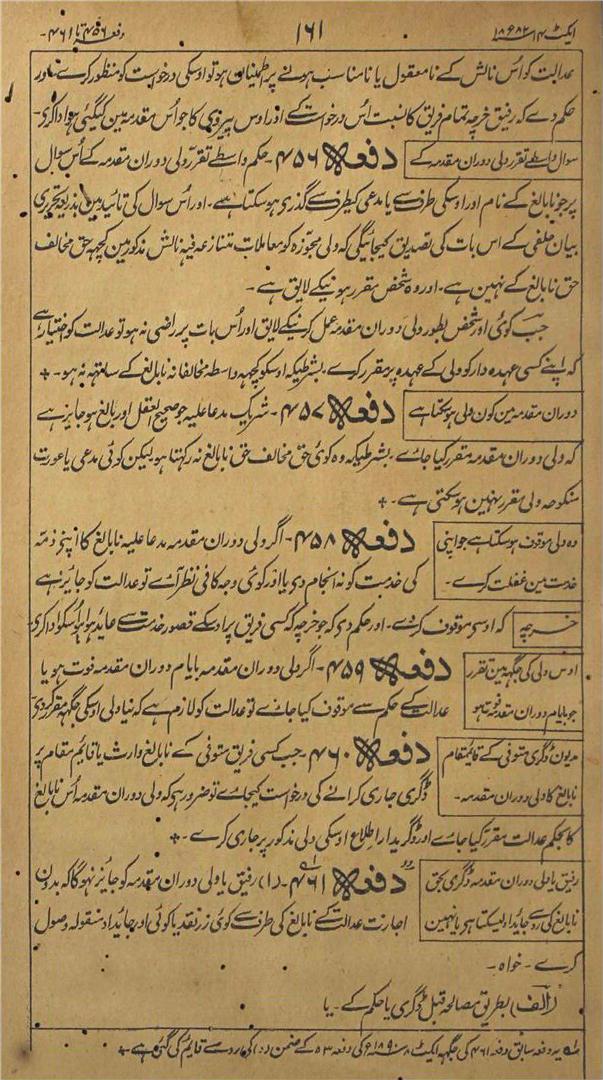 ایکٹ ۱۴ ۱۸۸۲ء
۱۶۱
دفعہ ۴۵۶ تا ۴۶۱-
عدالت کو اُس نالش کے نامعقول یا نامناسب ہونے پر اطمینان ہو تو اوسکی درخواست کو منظور کرے اور
حکم دے کہ رفیق خرچہ تمام فریق کا نسبت اُس درخواست کے اور اوس پیروی کا جو اُس مقدمہ مین کیگئی ہو ادا کردی-
سوال واسطے تقرر ولی دوران مقدمہ کے
دفعہ ۴۵۶-حکم واسطے تقرر ولی دوران مقدمہ کے اُس سوال
پر جو نابالغ کے نام اور اوسکی طرف سے یا مدعی کیطرف سے گذری ہوسکتا ہے-اور اُس سوال کی تائید مین بذریعہ تحریری
بیان حلفی کے اس بات کی تصدیق کیجائیگی کہ ولی مجوزہ کو معاملات متنازعہ فیہ نالش مذکور مین کچھہ حق مخالف
حق نابالغ کے نہین ہے-اور وہ شخص مقرر ہونیکے لایق ہے-
جب کوئی اور شخص بطور ولی دوران مقدمہ عمل کرنیکے لایق اور اُس بات پر راضی نہ ہو تو عدالت کو اختیار ہے
کہ اپنے کسی عہدہ دار کو ولی کے عہدہ پر مقرر کرے، بشرطیکہ اوسکو کچھہ واسطہ مخالفانہ نابالغ کے ساتھہ نہ ہو-
دوران مقدمہ مین کون ولی ہوسکتا ہے
دفعہ ۴۵۷-شریک مدعا علیہ جو صحیح العقل اور بالغ ہو جایز ہے
کہ ولی دوران مقدمہ مقرر کیا جائے، بشرطیکہ وہ کوئی حق مخالف حق نابالغ نہ رکھتا ہو لیکن کوئی مدعی یا عورت
منکوحہ ولی مقرر نہین ہوسکتی ہے-
وہ ولی موقوف ہوسکتا ہے جو اپنی
خدمت مین غفلت کرے-
دفعہ ۴۵۸-اگر ولی دوران مقدمہ مدعا علیہ نابالغ کا اپنے ذمہ
کی خدمت کو نہ انجام دی یا اور کوئی وجہ کافی نظر آئے تو عدالت کو جایز ہے
خرچہ
کہ اوسے موقوف کردے-اور حکم دی کہ جو خرچہ کہ کسی فریق پر اوسکے قصور خدمت سے عاید ہوا ہو اُسکو ادا کری-
اوس ولی کی جگہہ مین تقرر
جو بایام دوران مقدمہ فوت ہو
دفعہ ۴۵۹-اگر ولی دوران مقدمہ بایام دوران مقدمہ فوت ہو یا
عدالت کے حکم سے موقوف کیا جائے تو عدالت کو لازم ہے کہ نیا ولی اوسکی جگہہ مقرر کردی
مدیون ڈگری متوفی کے قایمقام
نابالغ کا ولی دوران مقدمہ-
دفعہ ۴۶۰-جب کسی فریق متوفی کے نابالغ وارث یا قایم مقام پر
ڈگری جاری کرانے کی درخواست کیجائے تو ضرور ہی کہ ولی دوران مقدمہ اُس نابالغ
کا بحکم عدالت مقرر کیا جائے اور ڈگریدار اطلاع اوسکی ولی مذکور پر جاری کرے-
رفیق یا ولی دوران مقدمہ ڈگری بحق
نابالغ کی رو سے جائداد لیسکتا ہی یا نہین
دفعہ ۴۶۱-(۱) رفیق یا ولی دوران مقدمہ کو جایز نہوگا کہ بدون
اجازت عدالت کے نابالغ کی طرف سے کوئی زر نقد یا کوئی اور جائیداد منقولہ وصول
کرے-خواہ-
(الف) بطریق مصالحہ قبل ڈگری یا حکم کے-یا
یہ دفعہ سابق دفعہ ۴۶۱ کی جگہہ ایکٹ ۸ ۱۸۹۰ء کی دفعہ ۵۳ کے ضمن کی رو سے قایم کی گئی ہے